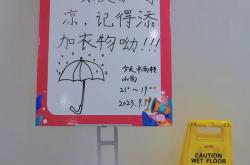 凉,记得添
加衣物呦!!!
今天中雨转
小雨
21°~19°
CAUTION
WET FLOOR